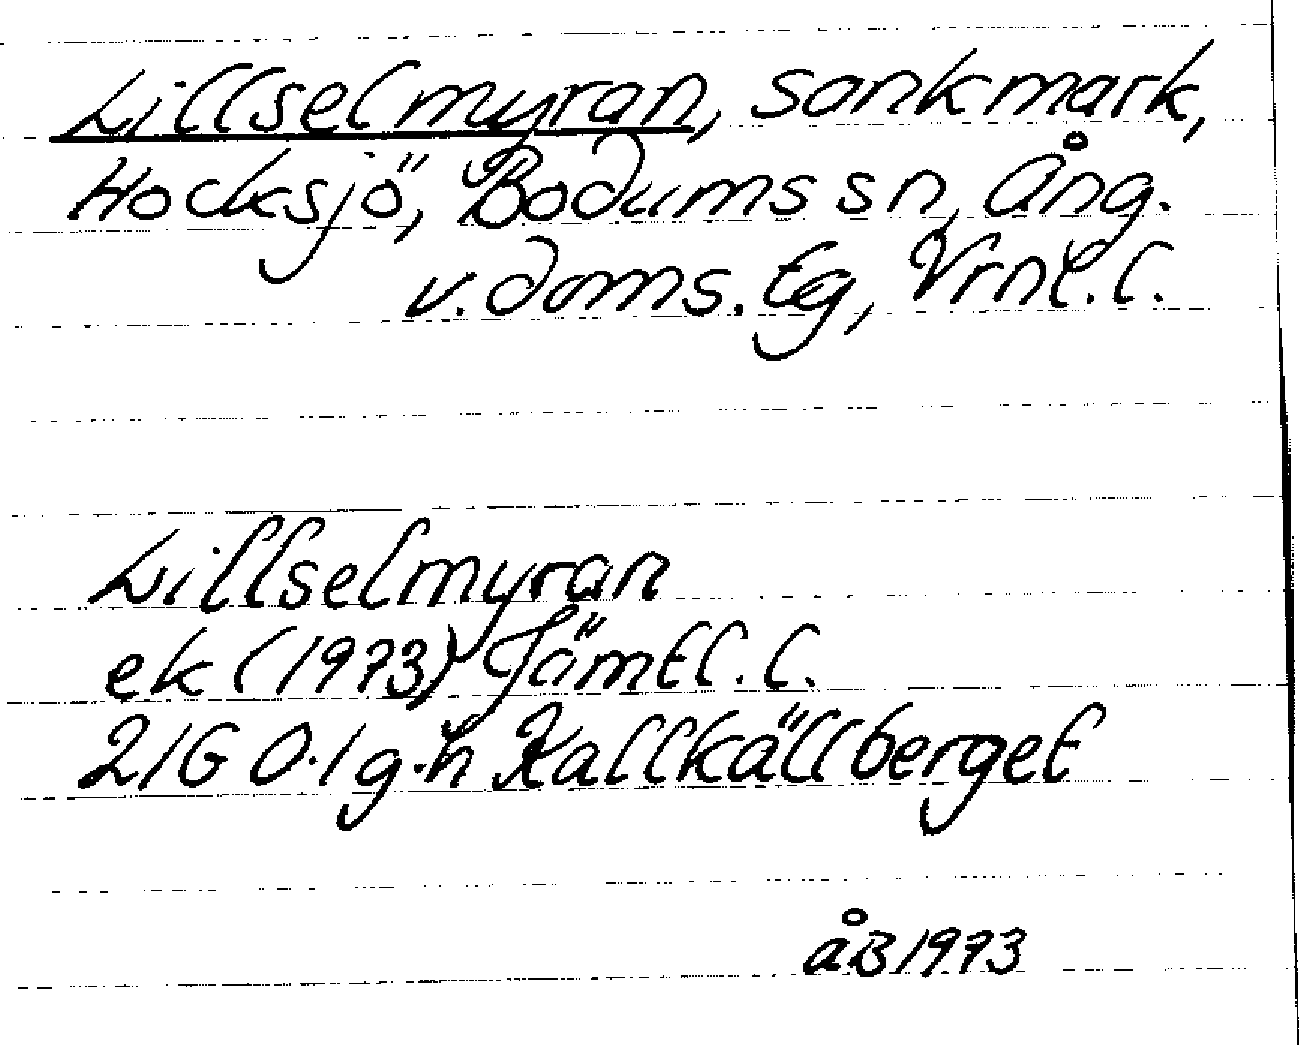 Lillselmyran, sankmark,
Hocksjö, Bodums sn, Ång.
v. doms. Eg, Vrnl. l.
Lillselmyran
ek (1973) Jämtl. l.
21G 0-1 g-h Kallkällberget
åB 1973